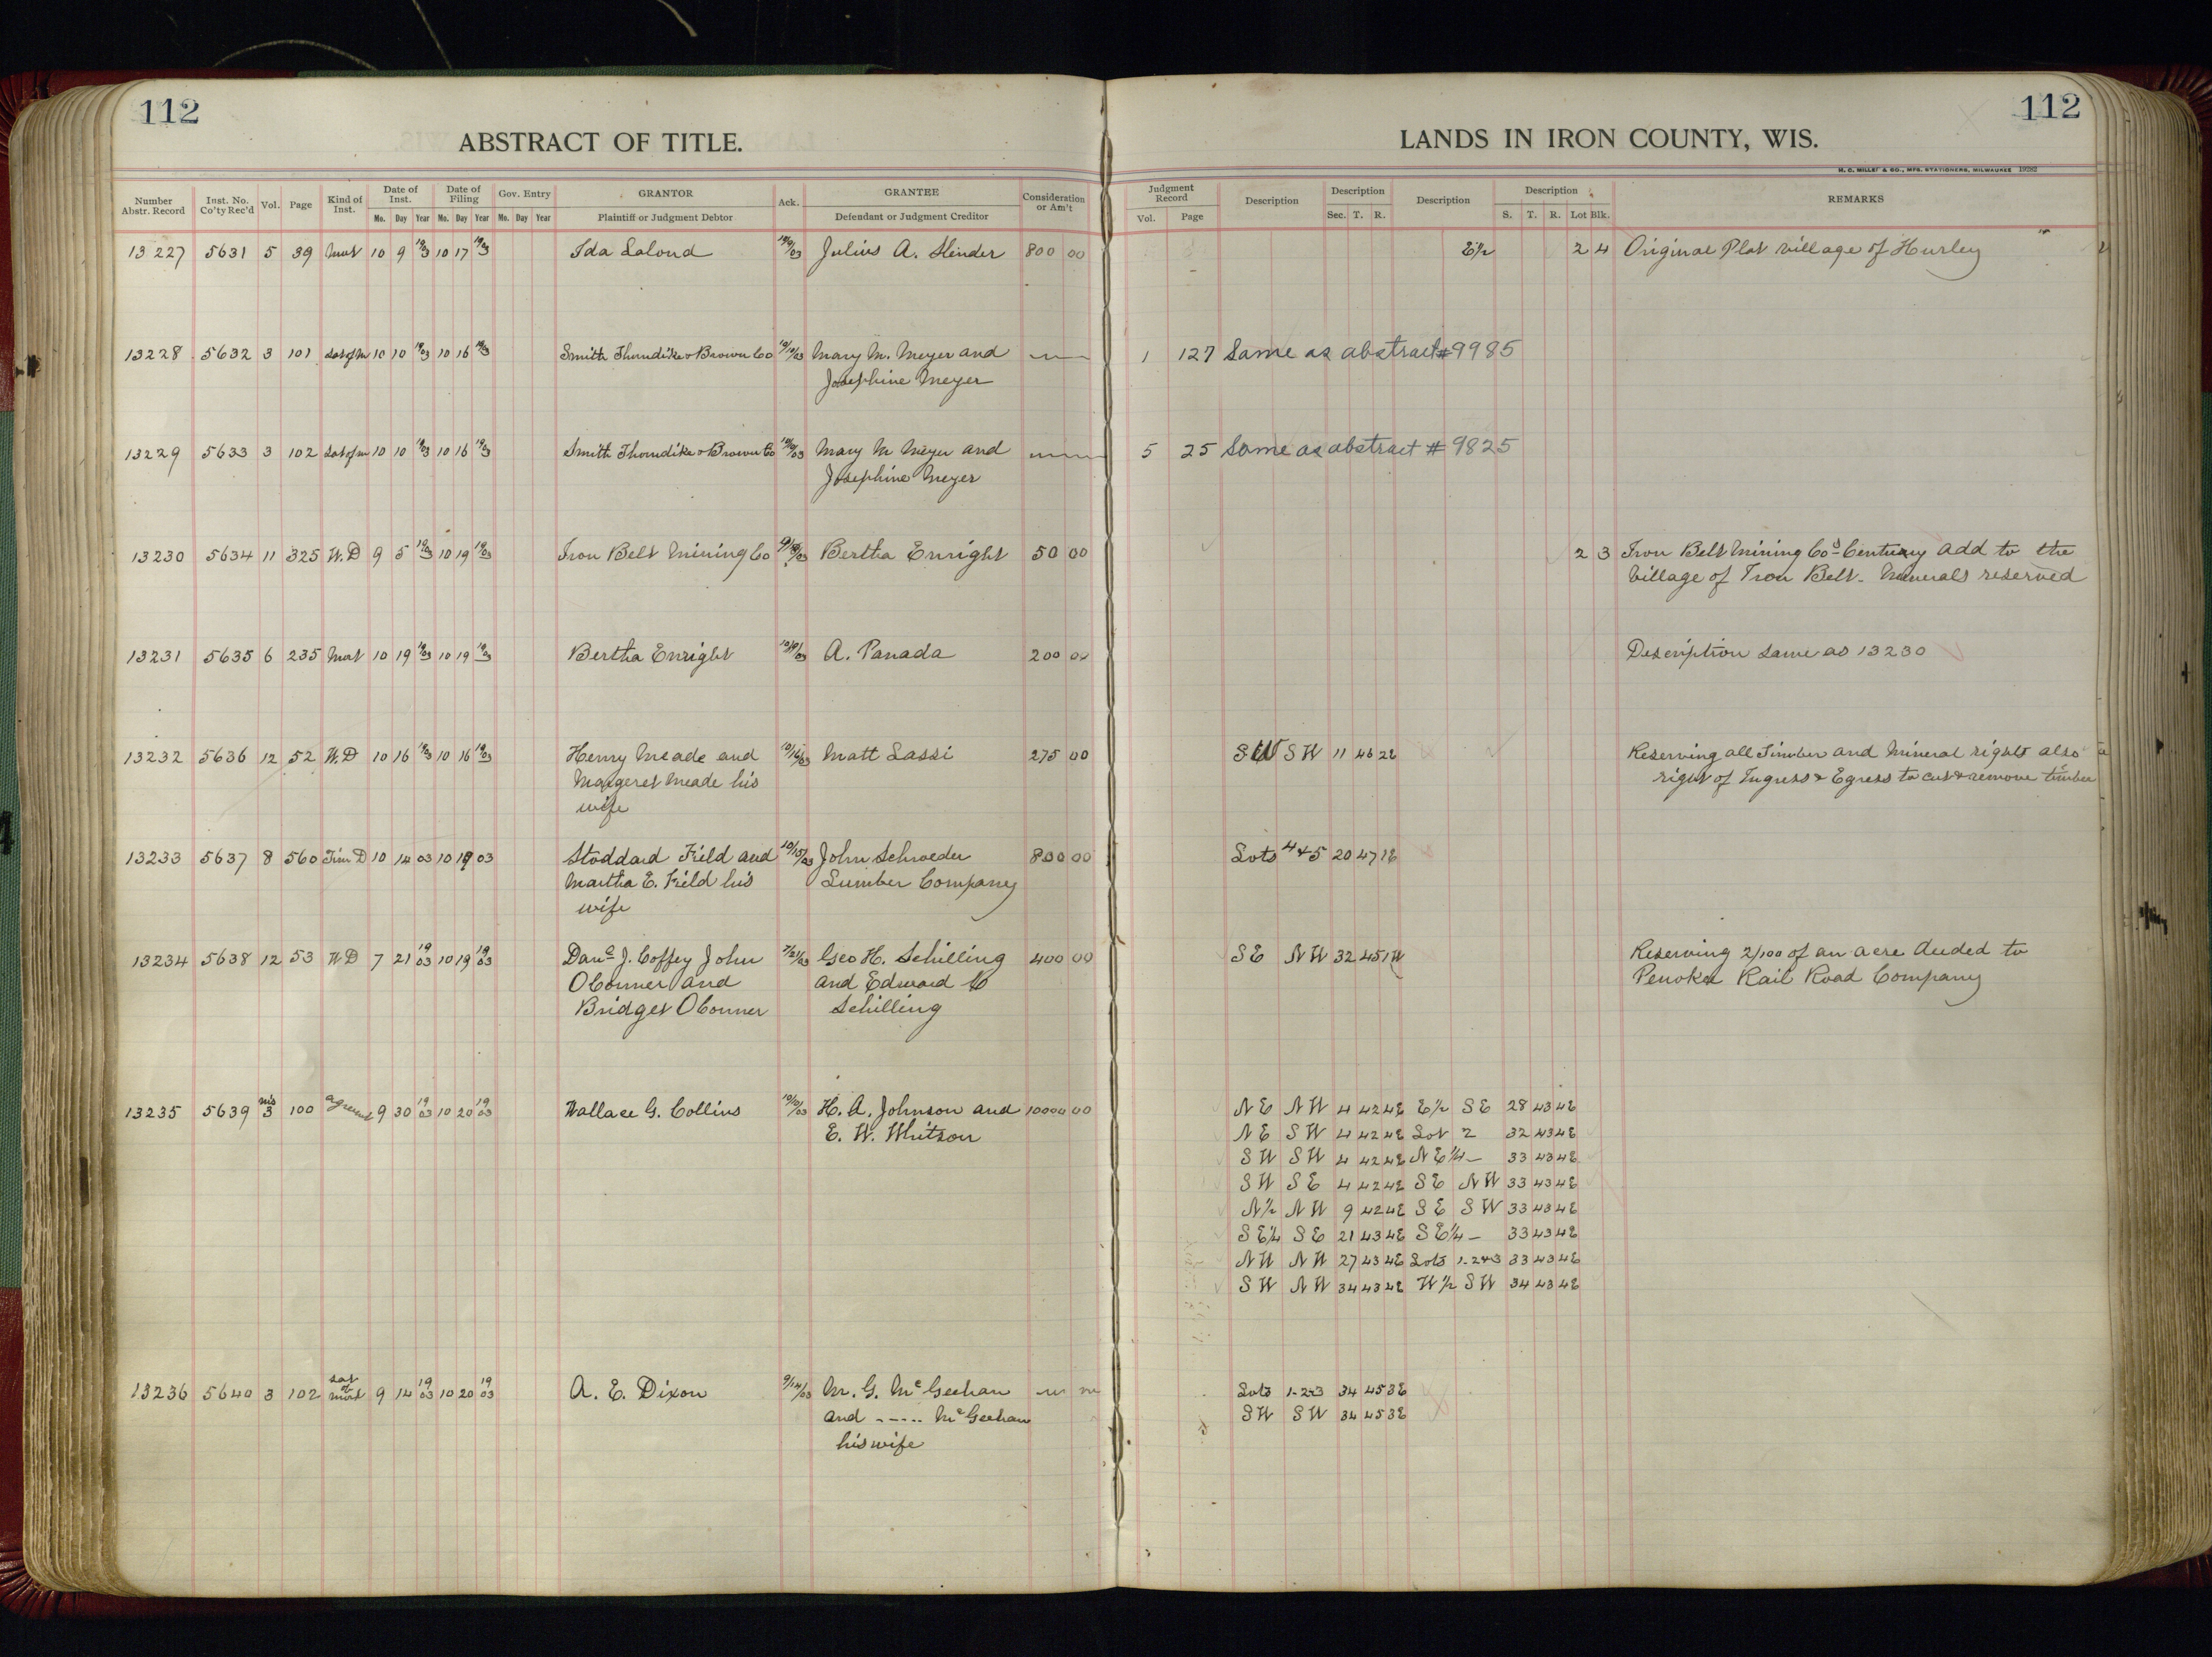 112
112
ABSTRACT OF TITLE.
LANDS IN IRON COUNTY, WIS.
H. C. MILLER & CO., MFG. STATIONERS, MILWAUKEE
Number Abstr. Record Inst. No. Co'ty Rec'd Vol. Page Kind of Inst. Date of Inst. Mo. Day Year Date of Filing Mo. Day Year Gov. Entry Mo. Day Year GRANTOR Plaintiff or Judgment Debtor Ack. GRANTEE Defendant or Judgment Creditor Consideration or Am't
Judgment Record Vol. Page Description Description Sec. T. R. Description Description S. T. R. Lot Blk. REMARKS
13227 5631 5 39 Mort 10 9 1903 10 17 1903 Ida Lalond 10/9/03 Julius A. Slinder 800 00 E1/2 2 4 Original Plat village of Hurley
13228 5632 3 101 Sat of M 10 10 1903 10 16 1903 Smith Thorndike & Brown Co 10/10/03 Mary M. Meyer and 1 127 Same as abstract #9985
Josephine Meyer
13229 5633 3 102 Sat of M 10 10 1903 10 16 1903 Smith Thorndike & Brown Co 10/10/03 Mary M Meyer and 5 25 Same as abstract #9825
Josephine Meyer
13230 5634 11 325 W.D 9 5 1903 10 19 1903 Iron Belt Mining Co Bertha Enright 50 00 2 3 Iron Belt Mining Cos Century Add to the
Village of Iron Belt - Minerals reserved
13231 5635 6 235 Mort 10 19 1903 10 19 1903 Bertha Enright 10/19/03 A. Panada 200 00 Description same as 13230
13232 5636 12 52 W.D 10 16 1903 10 16 1903 Henry Meade and 10/16/03 Matt Lassi 275 00 SW SW 11 46 2E Reserving all Timber and Mineral rights also
Margeret Meade his right of Ingress & Egress to cut & remove timber
wife
13233 5637 8 560 Tim D 10 14 03 10 19 03 Stoddard Field and 10/15/03 John Schroeder 800 00 Lots 4&5 20 47 1E
Martha E. Field his Lumber Company
wife
13234 5638 12 53 WD 7 21 1903 10 19 1903 Danl J. Coffey John 7/21/03 Geo H. Schilling 400 00 SE NW 32 45 1W Reserving 2/100 of an acre deeded to
OConner and and Edward Schilling Penokee Rail Road Company
Bridget OConner
13235 5639 Mis 3 100 agreement 9 30 1903 10 20 1903 Wallace G. Collins 10/10/03 H. A. Johnson and 10000 00 NE NW 4 42 4E E1/2 SE 28 43 4E
E. W. Whitson NE SW 4 42 4E Lot 2 32 43 4E
SW SW 4 42 4E NE1/4 - 33 43 4E
SW SE 4 42 4E SE NW 33 43 4E
N1/2 NW 9 42 4E SE SW 33 43 4E
SE1/4 SE 21 43 4E SE1/4 - 33 43 4E
NW NW 27 43 4E Lots 1-2&3 33 43 4E
SW NW 34 43 4E W1/2 SW 34 43 4E
13236 5640 3 102 Sat of Mort 9 14 1903 10 20 1903 A. E. Dixon 9/14/03 M. G. McGeehan Lots 1-2&3 34 45 3E
and ----- McGeehan SW SW 34 45 3E
his wife